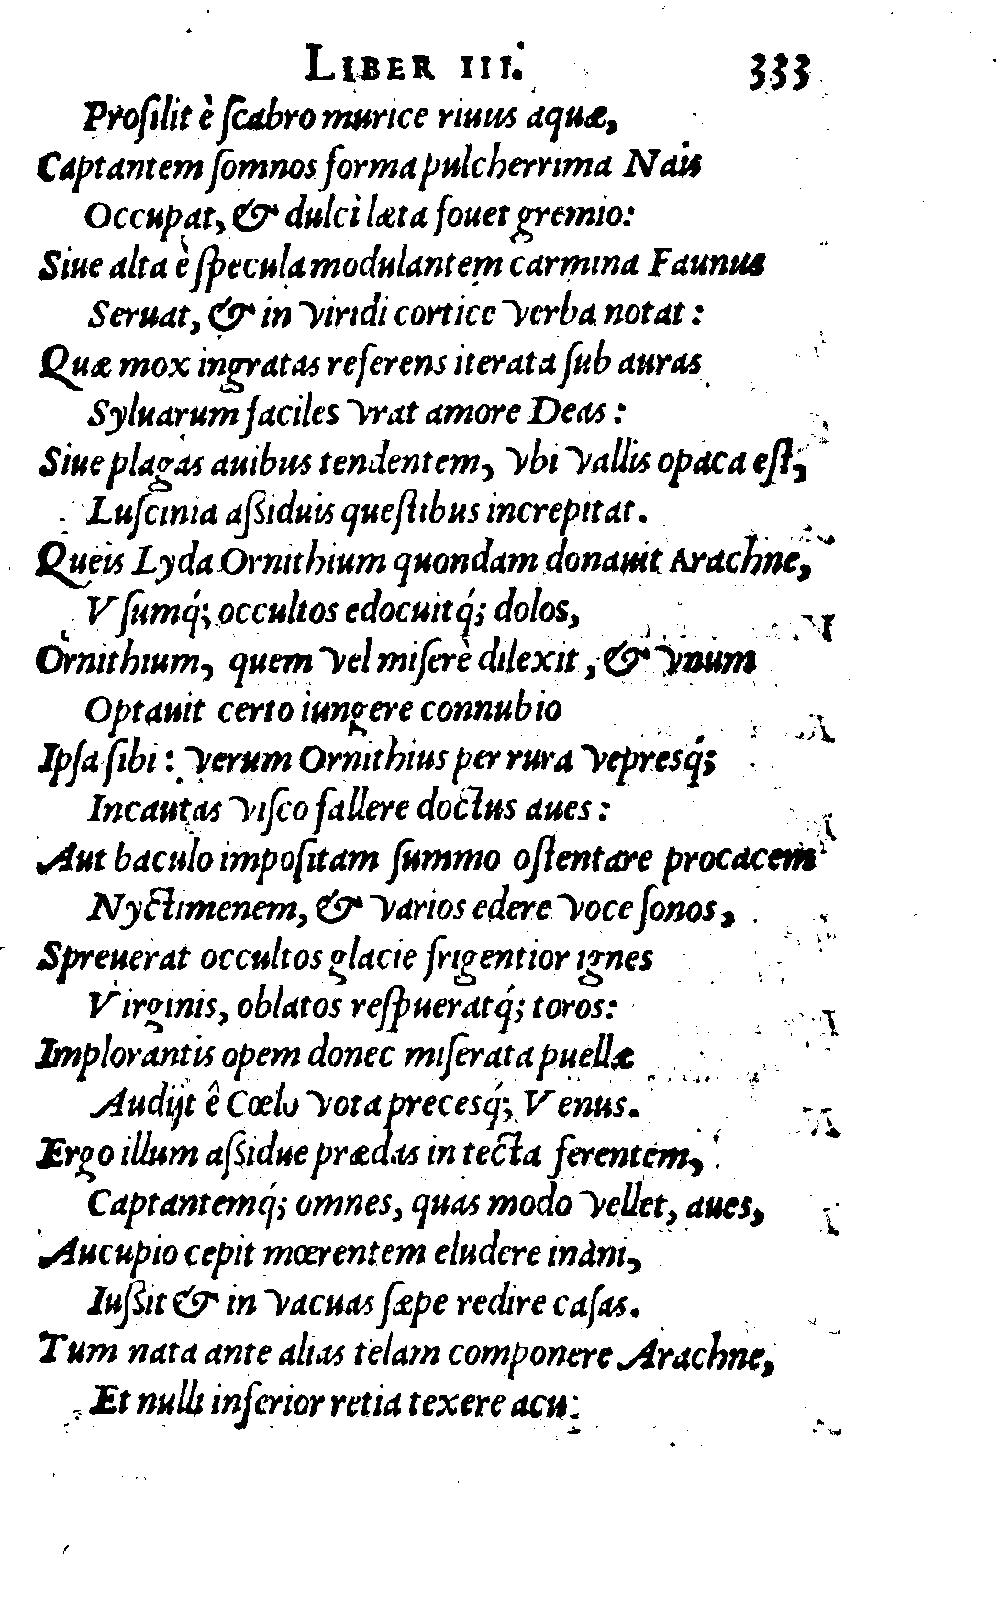 LIBER III. 333
Proſilit è ſcabro murice riuus aquæ,
Captantem ſomnos forma pulcherrima Naìs
Occupat, & dulci læta fouet gremio:
Siue alta è ſpecula modulantem carmina Faunus
Seruat, & in viridi cortice verba notat:
Quæ mox ingratas referens iterata ſub auras
Syluarum faciles vrat amore Deas:
Siue plagas auibus tendentem, vbi vallis opaca eſt,
Luſcinia aſſiduis queſtibus increpitat.
Queis Lyda Ornithium quondam donauit Arachne,
Vſumq́; occultos edocuitq́; dolos,
Ornithium, quem vel miſerè dilexit, & vnum
Optauit certo iungere connubio
Ipſa ſibi: verum Ornithius per rura vepresq́;
Incautas viſco fallere doctus aues:
Aut baculo impoſitam ſummo oſtentare procacem
Nyctimenem, & varios edere voce ſonos,
Spreuerat occultos glacie frigentior ignes
Virginis, oblatos reſpueratq́; toros:
Implorantis opem donec miſerata puellæ
Audijt ê Cœlo vota precesq́; Venus.
Ergo illum aſſidue prædas in tecta ferentem,
Captantemq́; omnes, quas modo vellet, aues,
Aucupio cepit mœrentem eludere inani,
Iuſſit & in vacuas ſæpe redire caſas.
Tum nata ante alias telam componere Arachne,
Et nulli inferior retia texere acu: